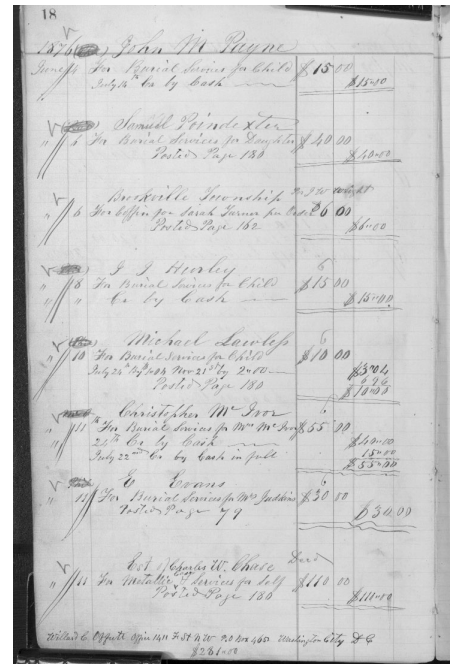 18
1876 John M Payne
June 4 For Burial Services for Child $15 00
July 14th Cr by Cash $15=00
Samuel Poindexter
" 5 For Burial Services for Daughter $40 00
Posted Page 180 $40=00
Brookville Township Per J W Wright
" 6 For Coffin for Sarah Turner per Order $6 00
Posted Page 162 $6=00
J J Hurley
" 8 For Burial Services for Child $15 00
" " Cr by Cash $15=00
Michael Lawless
" 10 For Burial Services for Child $10 00
July 24th by Nov 21st by 2=00 $3=04
Posted Page 180 $10=00
Christopher McIvor
" 11th For Burial Services for Mrs McIvor $55 00
24th Cr by Cash $40=00
July 22nd Cr by Cash in full 15=00
$55=00
E Evans
" 11 For Burial Services for Mrs Judkins $30 00
Posted Page 79 $30.00
Est of Charles W. Chase Decd
" 11 For Metallic Services for Self $110 00
Posted Page 180 $110=00
Willard C Offutt Office 1411 F St N.W. P.O Box 460 Washington City D C
$281=00